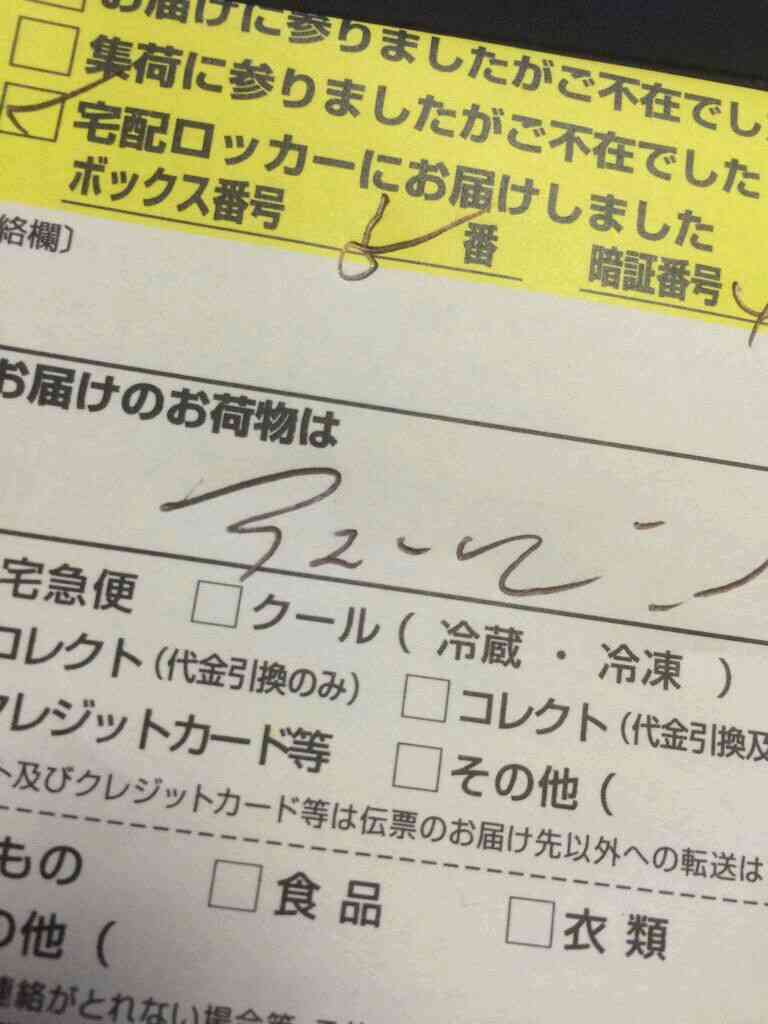 お届けに参りましたがご不在でし
集荷に参りましたがご不在でした
宅配ロッカーにお届けしました
ボックス番号 番 暗証番号
絡欄〕
お届けのお荷物は
宅急便 クール(冷蔵・冷凍)
コレクト(代金引換のみ) コレクト(代金引換及
レジットカード等 その他(
ト及びクレジットカード等は伝票のお届け先以外への転送は
もの 食品 衣類
の他(
連絡がとれない場合等